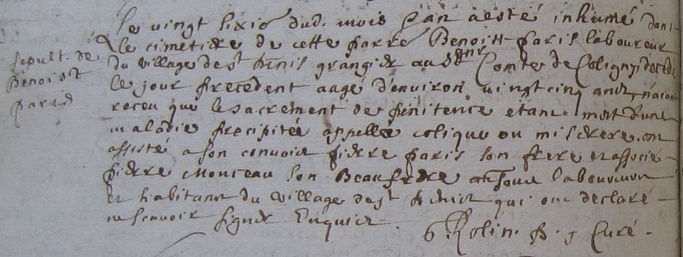 Sepult. de
Benoist
paris
Le vingt sixie dud. mois & an a esté inhumé dans
le cimetiere de cette parre Benoist paris laboureur
du village de st granger au Sgnr Comte de Coligny decedé
le jour precedent aagé d'environ vingt cinq ans n'aiant
receu que le sacrement de penitence etant mort d'une
maladie precipitée appellée colique ou miserere. ont
assisté a son convoie pierre paris son frere et associé
pierre monceau son Beaufrere laboureurs
et habitants du village de st qui ont declaré
ne scavoir signer Enquis
Rolin. Curé.